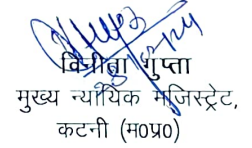 विनीता गुप्ता
मुख्य न्यायिक मजिस्ट्रेट,
कटनी (म०प्र०)